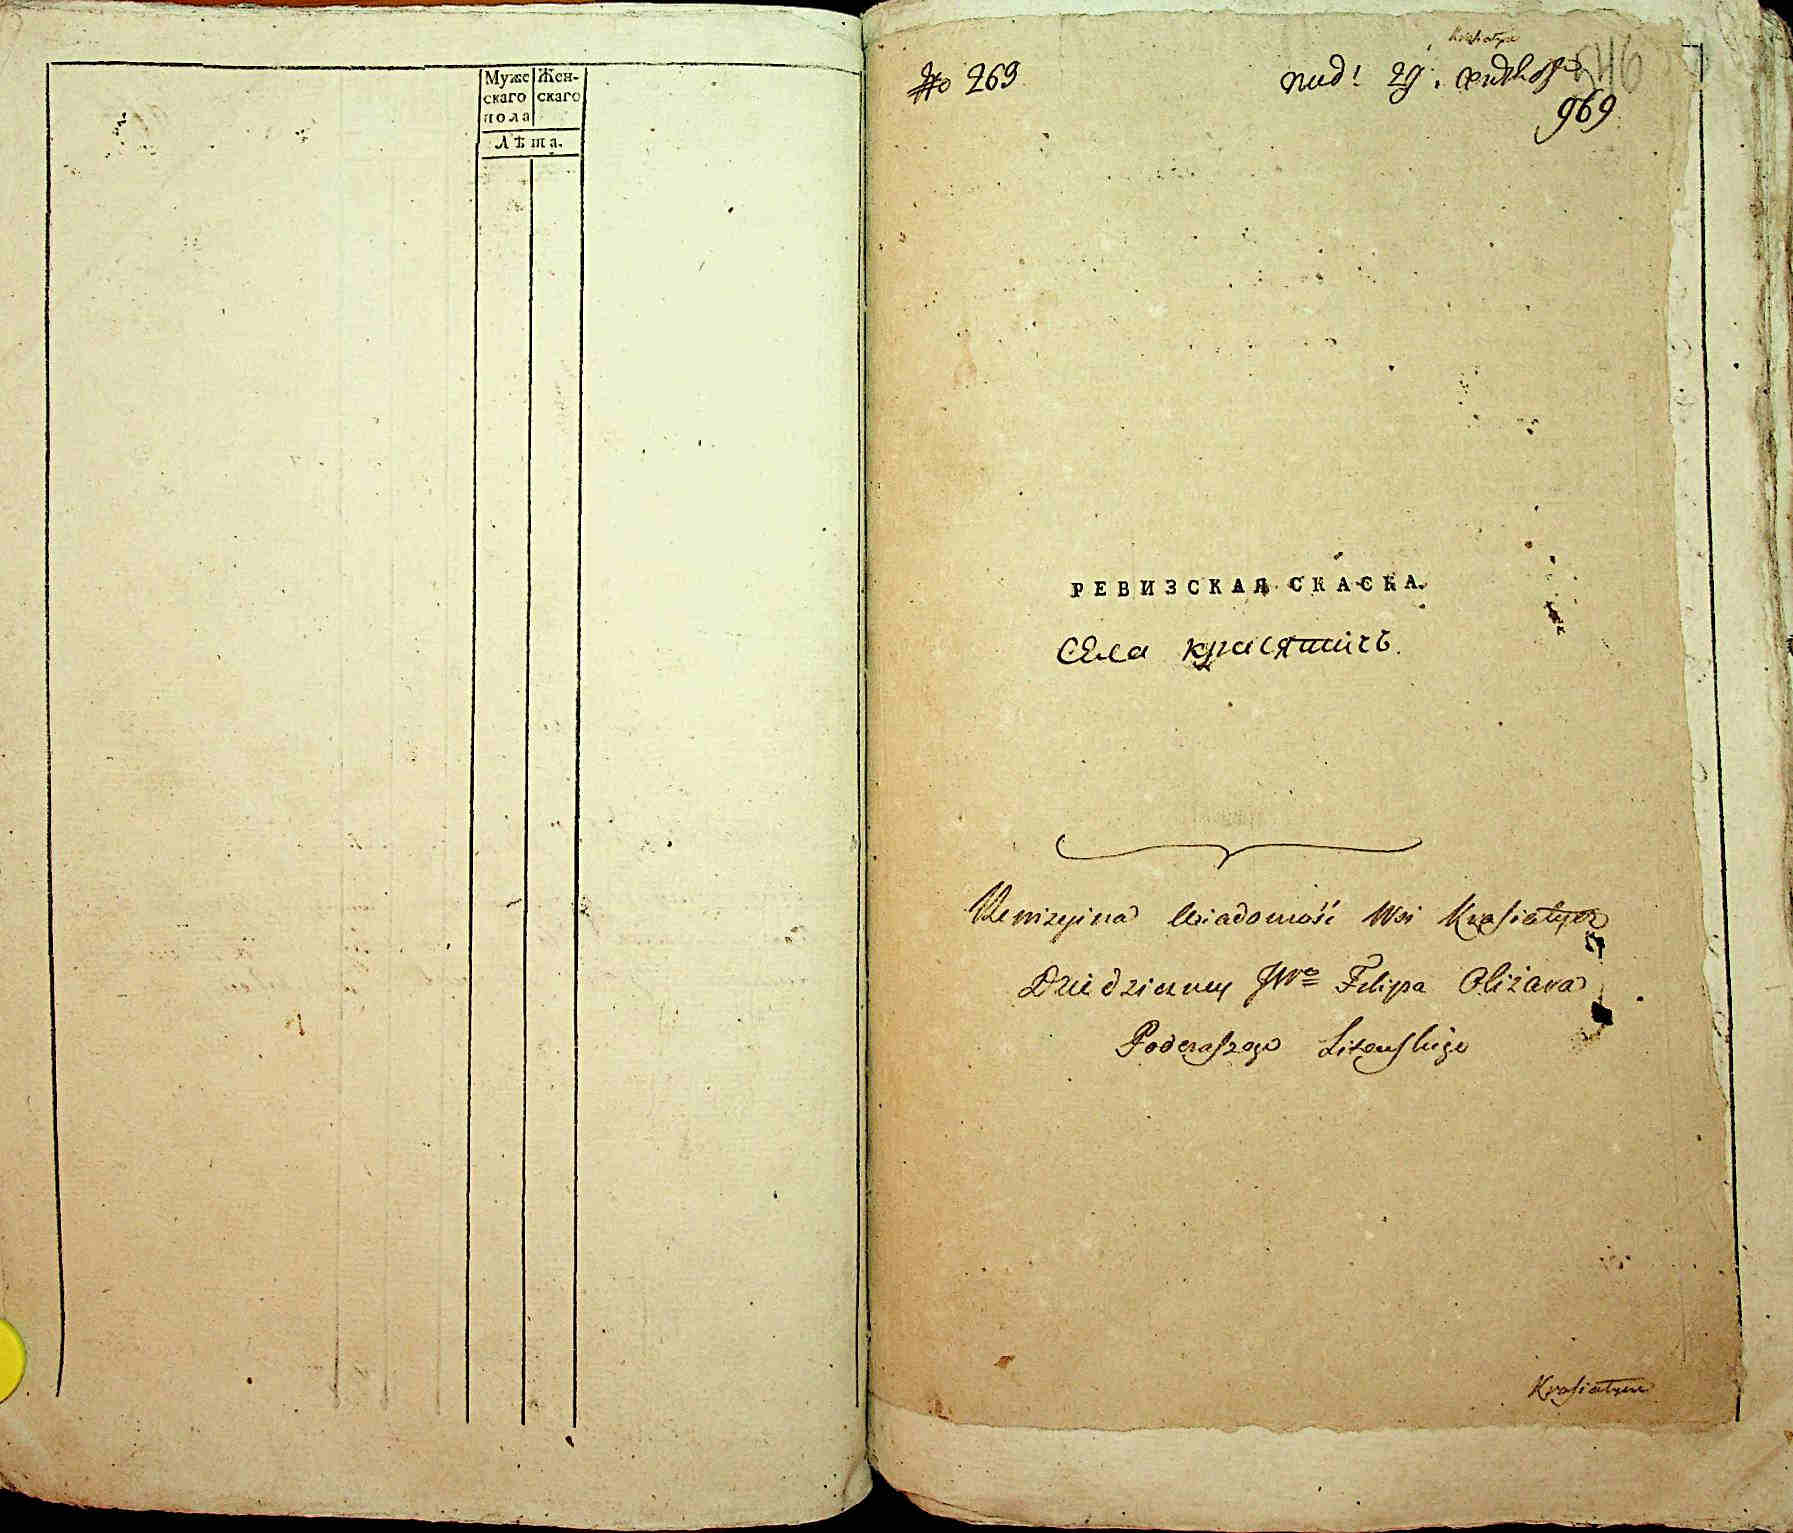 Муже Жен-
скаго скаго
пола
Лѣта.
Krasiatycz
No 269
29.
546
969
РЕВИЗСКАЯ СКАСКА.
Села красятичъ.
Rewizyina Wiadomość Wsi Krasiatycz
Dziedziczney JWo Filipa Oliżara
Podczaszego Litewskiego
Krasiatycze